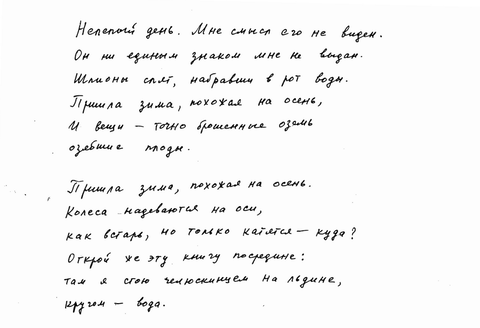 Нелепый день. Мне смысл его не виден.
Он ни единым знаком мне не выдан.
Шпионы спят, набравши в рот воды.
Пришла зима, похожая на осень,
И вещи — точно брошенные оземь
озябшие плоды.
Пришла зима, похожая на осень.
Колеса надеваются на оси,
как встарь, но только катятся — куда?
Открой же эту книгу посредине:
там я стою челюскинцем на льдине,
кругом — вода.